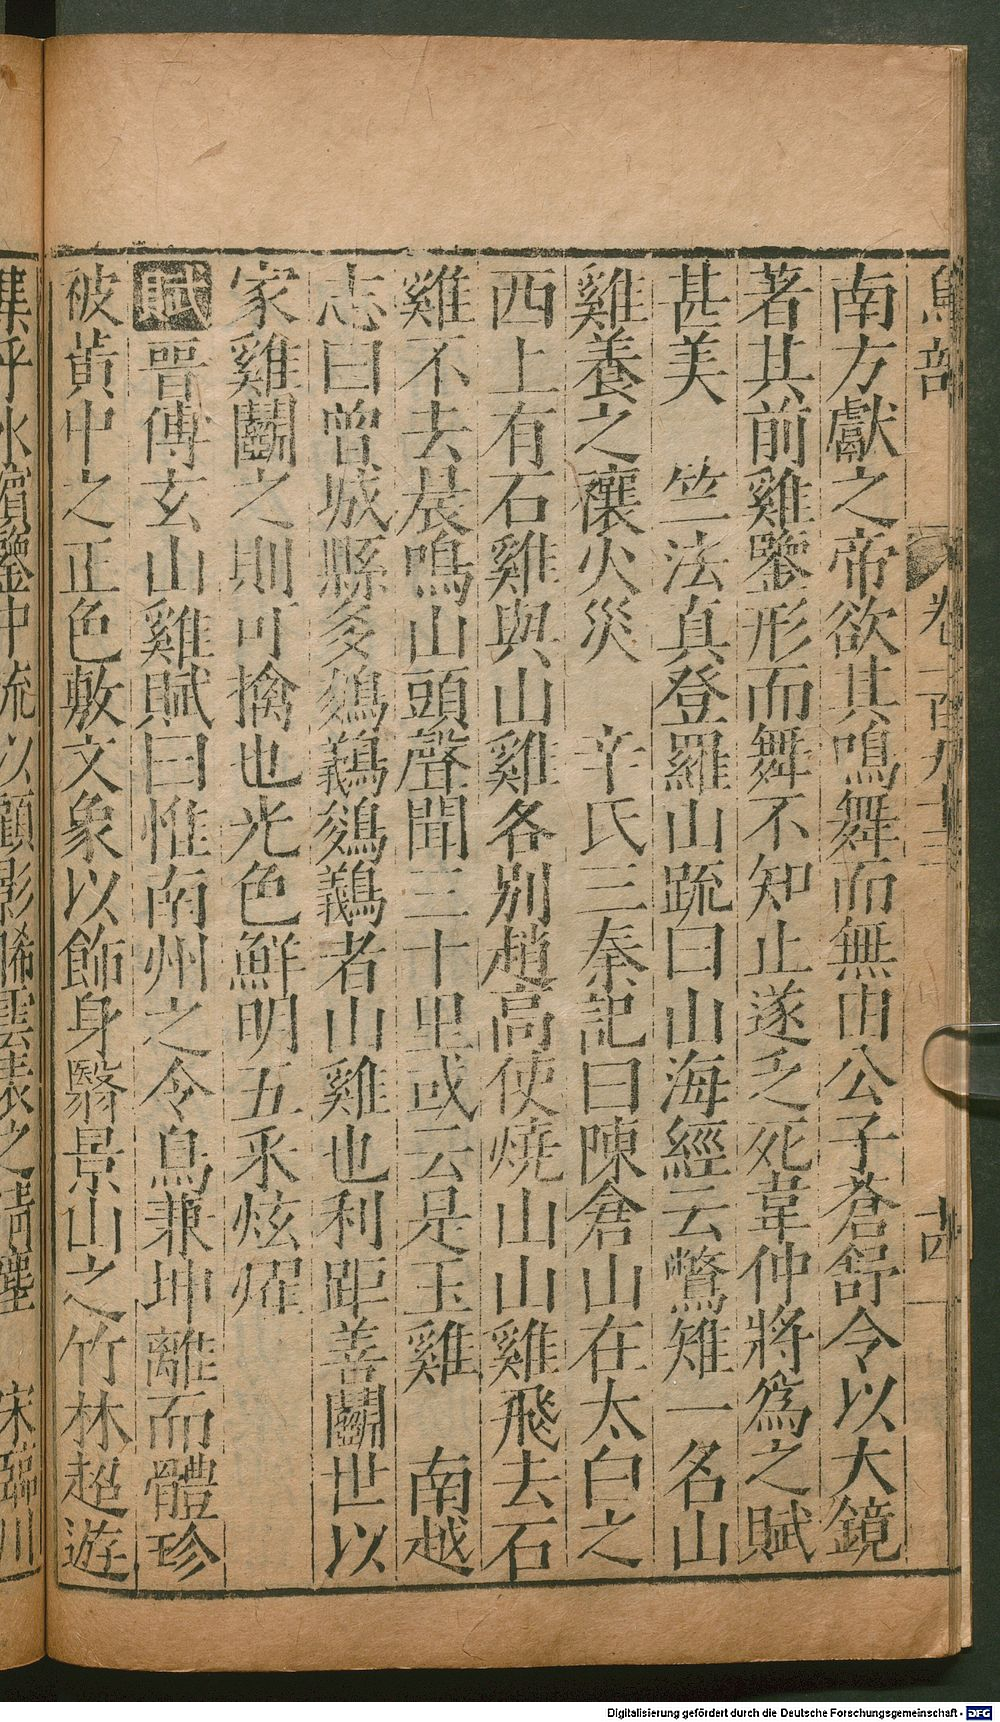 南方獻之帝欲其鳴舞而無由公子蒼舒令以大鏡
著其前雞鑒形而舞不知止遂乏死韋仲將爲之賦
甚美　竺法真登羅山疏曰山海經云鷩雉一名山
雞養之禳火災　辛氏三秦記曰陳倉山在太白之
西上有石雞與山雞各別趙高使燒山山雞飛去石
雞不去晨鳴山頭聲聞三十里或云是玉雞　南越
志曰曾城縣多鵕鸃鵕鸃者山雞也利距善鬭世以
家雞鬭之則可擒也光色鮮明五采炫燿
賦晉傅玄山雞賦曰惟南州之令鳥兼坤離而體珍
被黃中之正色敷文象以飾身翳景山之竹林超遊
集乎水濱鑒中流以顧影晞雲表之清塵　宋臨川
Digitalisierung gefördert durch die Deutsche Forschungsgemeinschaft - DFG